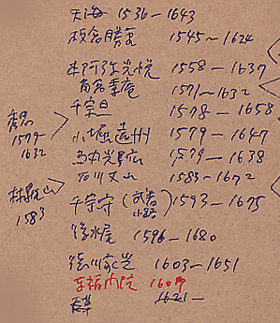 天海 1536-1643
板倉勝重 1545～1624
本阿弥光悦 1558-1637
角倉素庵 1571～1632
千宗旦 1578-1658
小堀遠州 1579-1647
烏丸光広 1579-1638
石川丈山 1583-1672
千宗守 (武者小路) 1593-1675
後水尾 1596-1680
徳川家光 1603-1651
東福門院 1607
1621-
秀忠
1579
1632
林羅山
1583